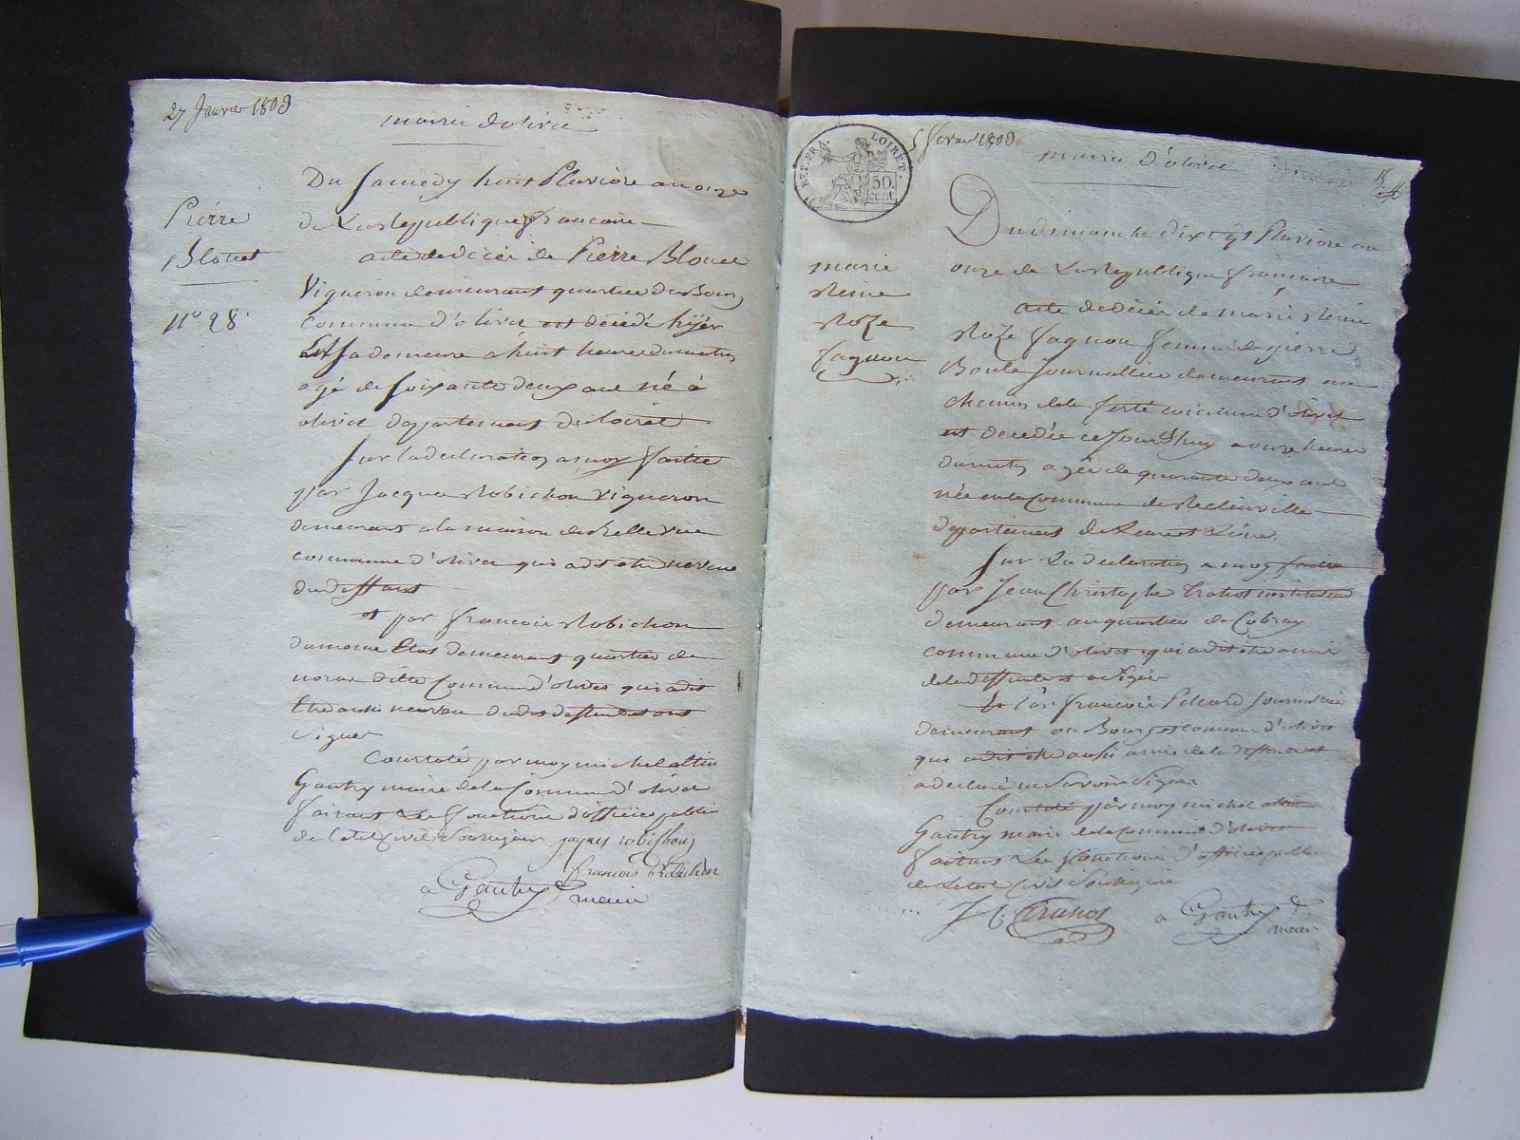 27 Janvier 1803
mairie d'olivet
Du Samedy huit Pluviose an onze
de La Republique francaise
Pierre
Blouet
n° 28
acte de décéé de Pierre Blouet
Vigneron demeurant quartier du Bourg
commune d'olivet est décédé hÿer
En Sa demeure a huit heures du matin
agé de Soixante deux ans né à
olivet departement du loiret
Sur la declaration a moy faitte
par Jacque Robichon Vigneron
demeurant a la maison de Belle vue
commune d'olivet qui a dit etre neveu
du deffunt
et par francois Robichon
du meme Etat demeurant quartier de
ditte Commune d'olivet qui a dit
Etre aussi neveu dudit deffunt et ont
Signer
Constaté par moy michel
Gautry maire de la Commune d'olivet
faisant Les fonctions d'officier public
de l'etat Civil Soussigner jaques robichon
francois Robichon
Gautry maire
REP. FRA. LOIRET.
50 cent
5 fevrier 1803
mairie d'olivet
Du dimanche dix Sept Pluviose an
onze de La Republique francaise
marie
Reine
Roze
fagnou
acte de décéé de marie Reine
Roze fagnou femme de pierre
Boule Journallier demeurant au
chemin de la ferté commune d'olivet
est decedée ce Jourd'huy a onze heures
du matin agée de quarante deux ans
née en la Commune de
departement de Leure et Loire
Sur La declaration a moy faitte
par Jean Christophe trahot instituteur
demeurant au quartier de Cobray
commune d'olivet qui a dit etre amis
de la deffunte et a Signé
Et Par francois Picard Journallier
demeurant au Bourg commune d'olivet
qui a dit etre aussi amis de la deffunte et
a declaré ne Savoir Signer
Constaté par moy michel
Gautry maire de la commune d'olivet
faisant Les fonctions d'officier public
de Letat Civil Soussigné
J C Trahot
Gautry maire